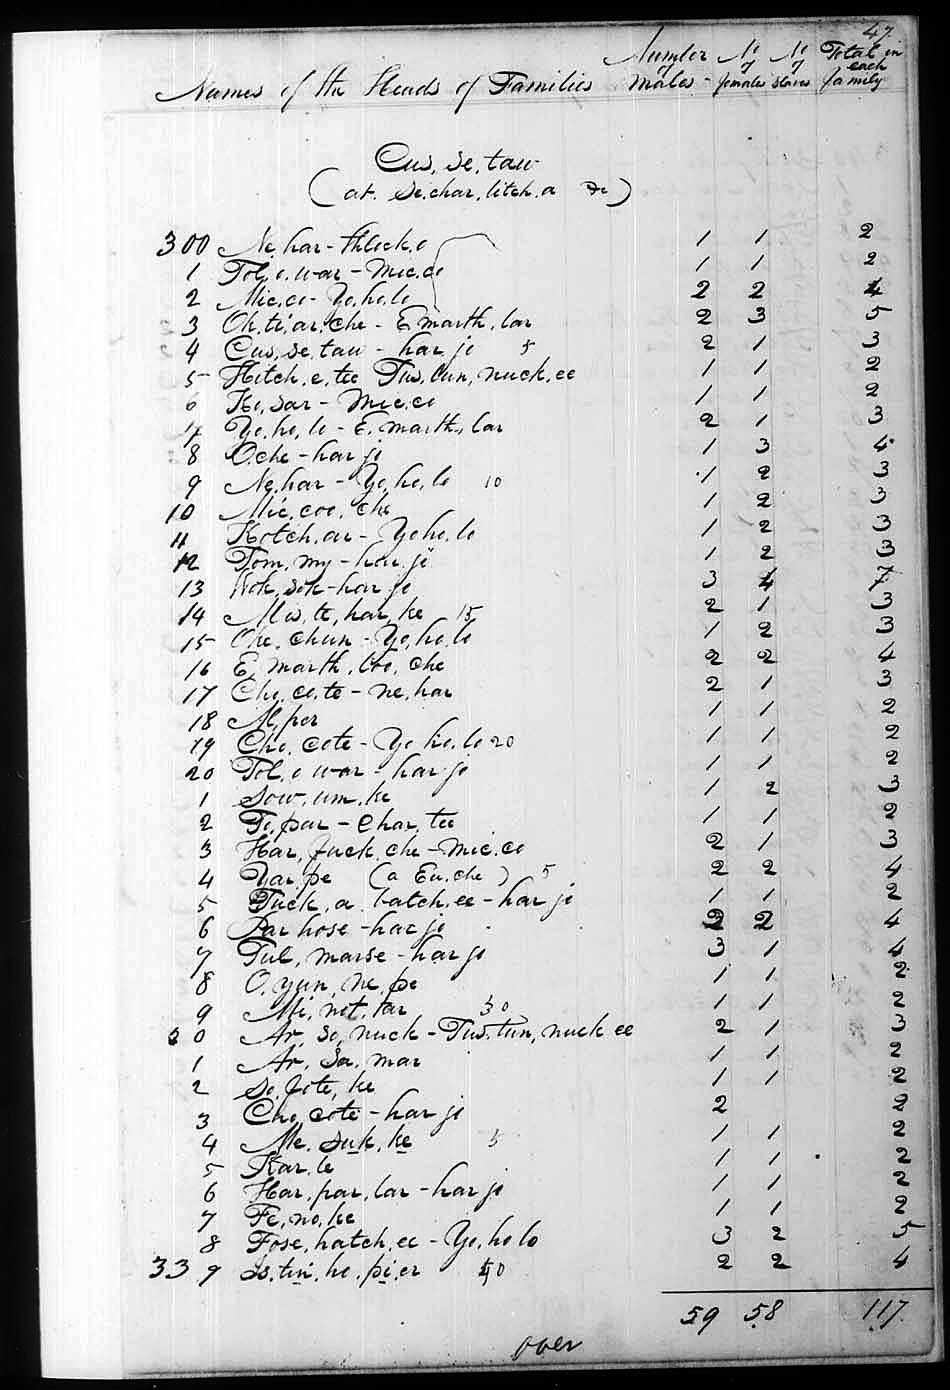 47
Names of the Heads of Families Number of males - No of females No of slaves Total in each family
Cus, se, taw
(at. Se.char, litch, a &c)
300 Ne, har - thlock, o 1 1 2
1 Tol, o, war - Mic.co 1 1 2
2 Mic.co - Yo, ho, lo 2 2 4
3 Ok, ti, ar, che - E marth, lar 2 3 5
4 Cus, se, taw - har jo 5 2 1 3
5 Hitch, e, tee Tus, tun, nuck, ee 1 1 2
6 Ko, sar - Mic.co 1 1 2
7 Yo, ho, lo - E, marth, lar 2 1 3
8 O.che - har jo 1 3 4
9 Ne, har - Yo, ho, lo 10 1 2 3
10 Mic, coo, che 1 2 3
11 Kotch, ar - Yo ho, lo 1 2 3
12 Tom, my - har, jo 1 2 3
13 Wok, sok - har jo 3 4 7
14 Mis, te, har, ke 15 2 1 3
15 Oke, chun - Yo, ho, lo 1 2 3
16 E, marth, loo, che 2 2 4
17 Cho, co, te - ne, har 2 1 3
18 Al, per 1 1 2
19 Cho, cote - Yo ho, lo 20 1 1 2
20 Tol, o war - har jo 1 1 2
1 Sow, um, ke 1 2 3
2 Fi, par - Char, tee 1 1 2
3 Har, juck, che - Mic.co 2 1 3
4 Yar, pe (a Eu, che) 5 2 2 4
5 Tuck, a, batch, ee - har jo 1 1 2
6 Par hose - har jo 2 2 4
7 Tul, marse - har jo 3 1 4
8 O, yun, ne, pe 1 1 2
9 Mi, not, tar 30 1 1 2
30 Ar, so, nuck - Tus, tun, nuck ee 2 1 3
1 Ar, sa, mar 1 1 2
2 So, fote, ke 1 1 2
3 Cho, cote - har jo 2 2
4 Me, suk, ke 5 1 1 2
5 Kar, le 1 1 2
6 Har, par, lar - har jo 1 1 2
7 Fe, no, ke 1 1 2
8 Fose, hatch, ee - Yo, ho lo 3 2 5
339 Is, tin, ho, pi, er 40 2 2 4
59 58 117
over